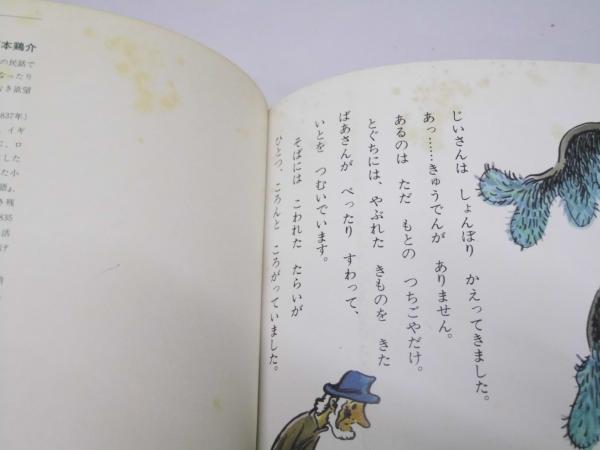 じいさんは しょんぼり かえってきました。
あっ……きゅうでんが ありません。
あるのは ただ もとの つちごやだけ。
とぐちには、やぶれた きものを きた
ばあさんが べったり すわって、
いとを つむいでいます。
そばには こわれた たらいが
ひとつ、ころんと ころがっていました。
本鶏介
の民話で
なったり
なき欲望
837年)
、イギ
に、ロ
ました
た小
語』、
き残
835
活
げ